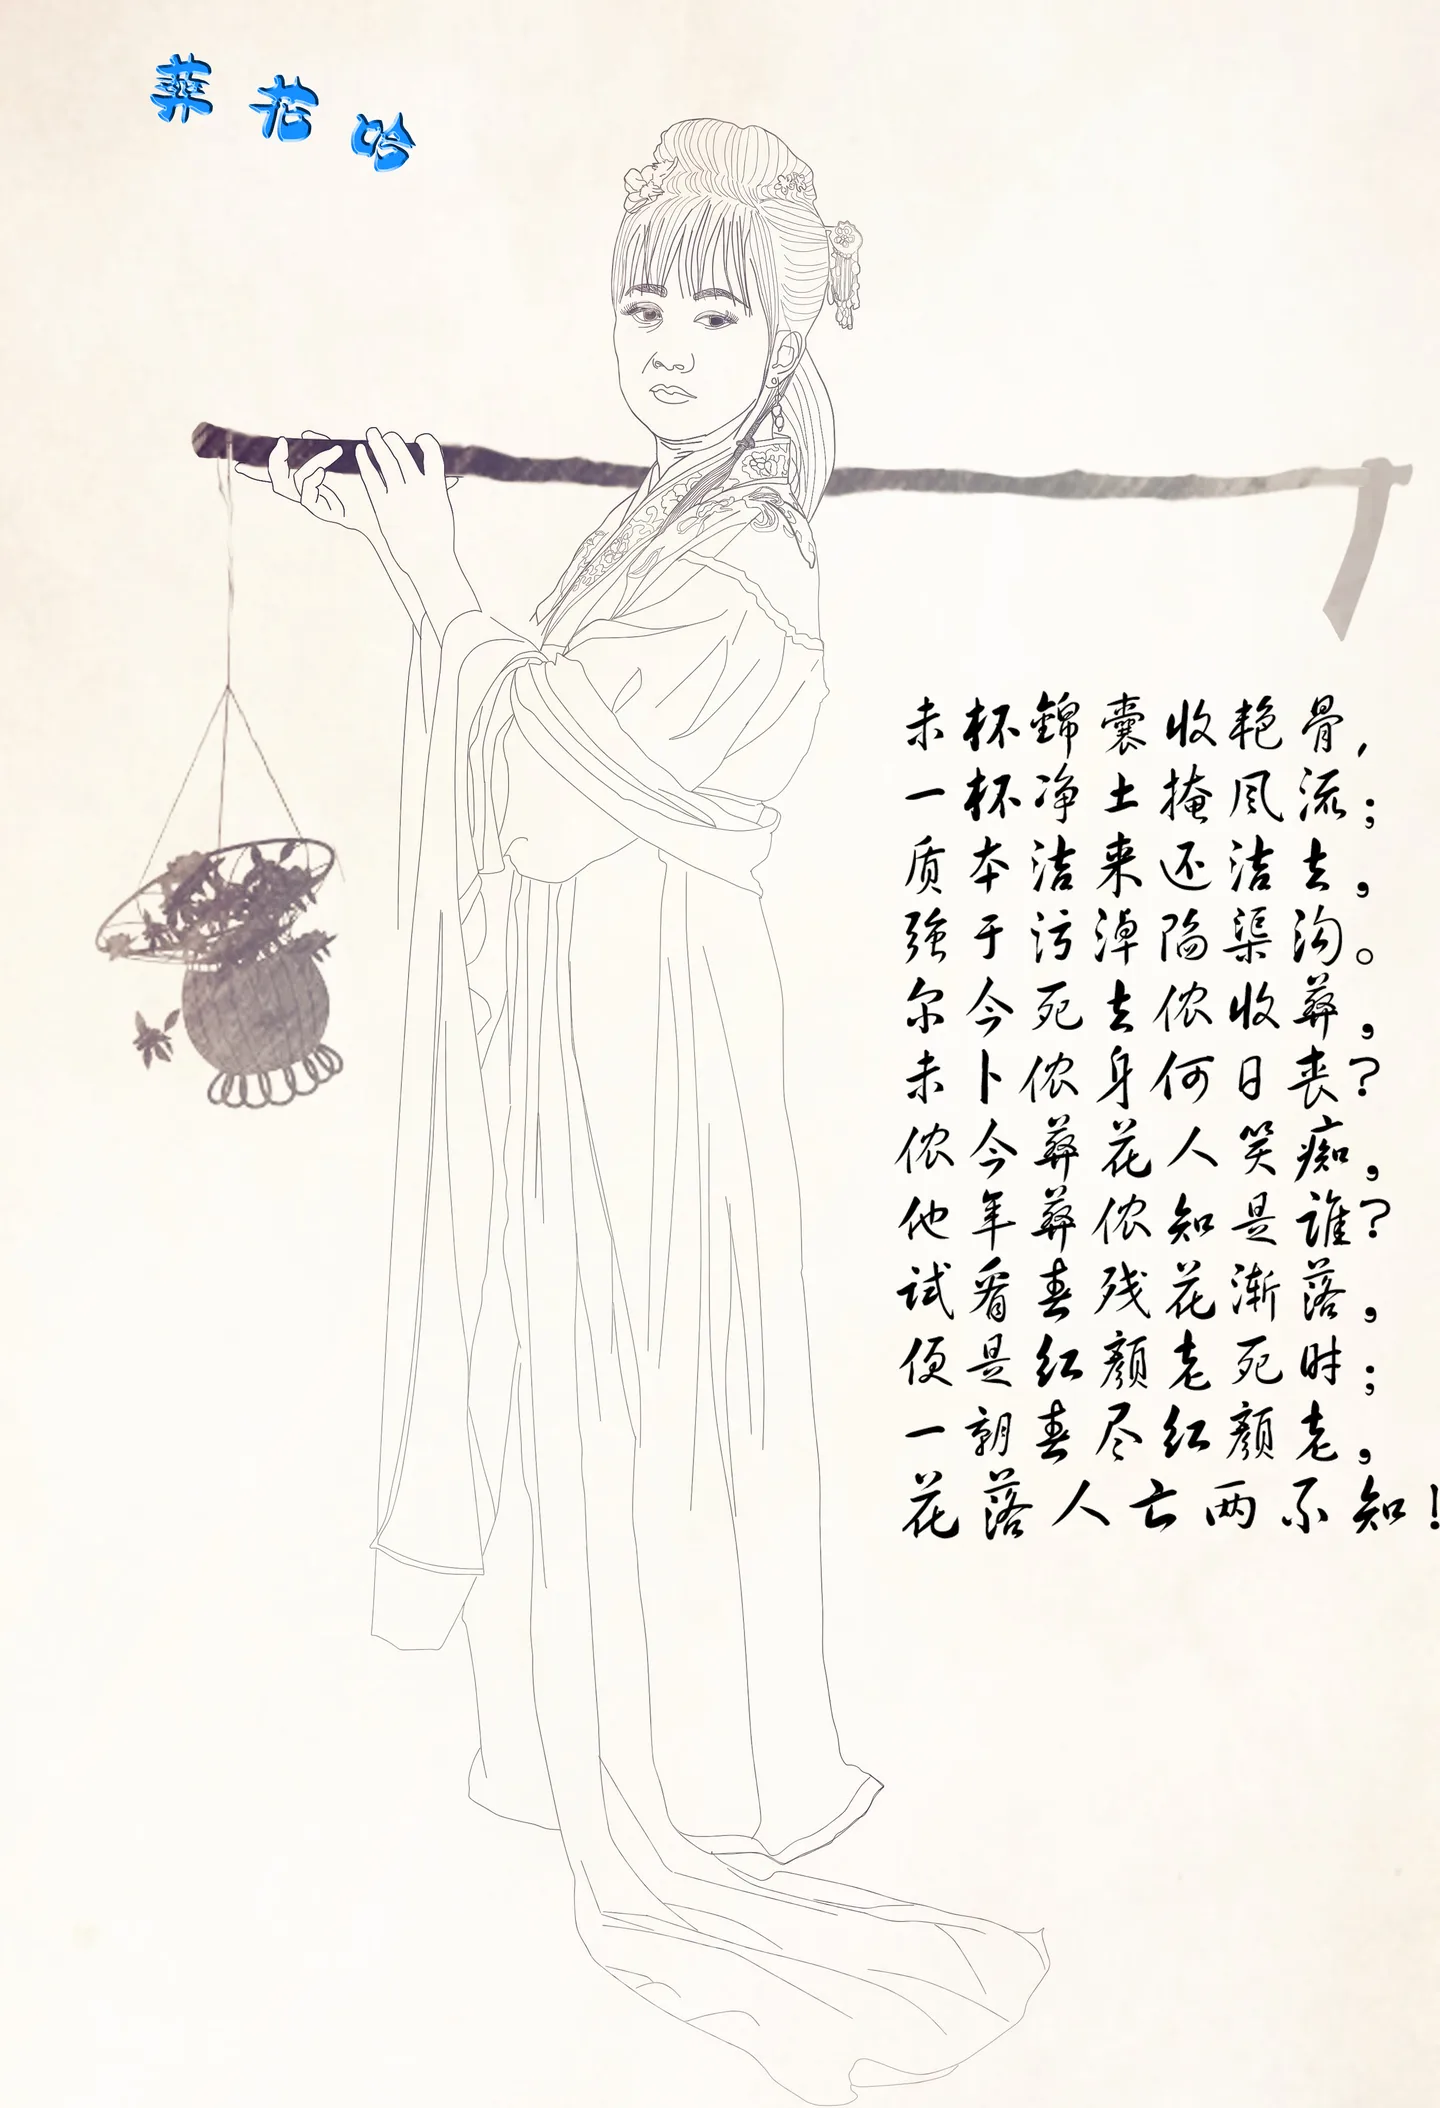 葬花吟
未杯錦囊收艳骨,
一杯净土掩风流;
质本洁来还洁去,
强于污淖陷渠沟。
尔今死去侬收葬,
未卜侬身何日丧?
侬今葬花人笑痴,
他年葬侬知是谁?
试看春残花渐落,
便是红颜老死时;
一朝春尽红颜老,
花落人亡两不知!